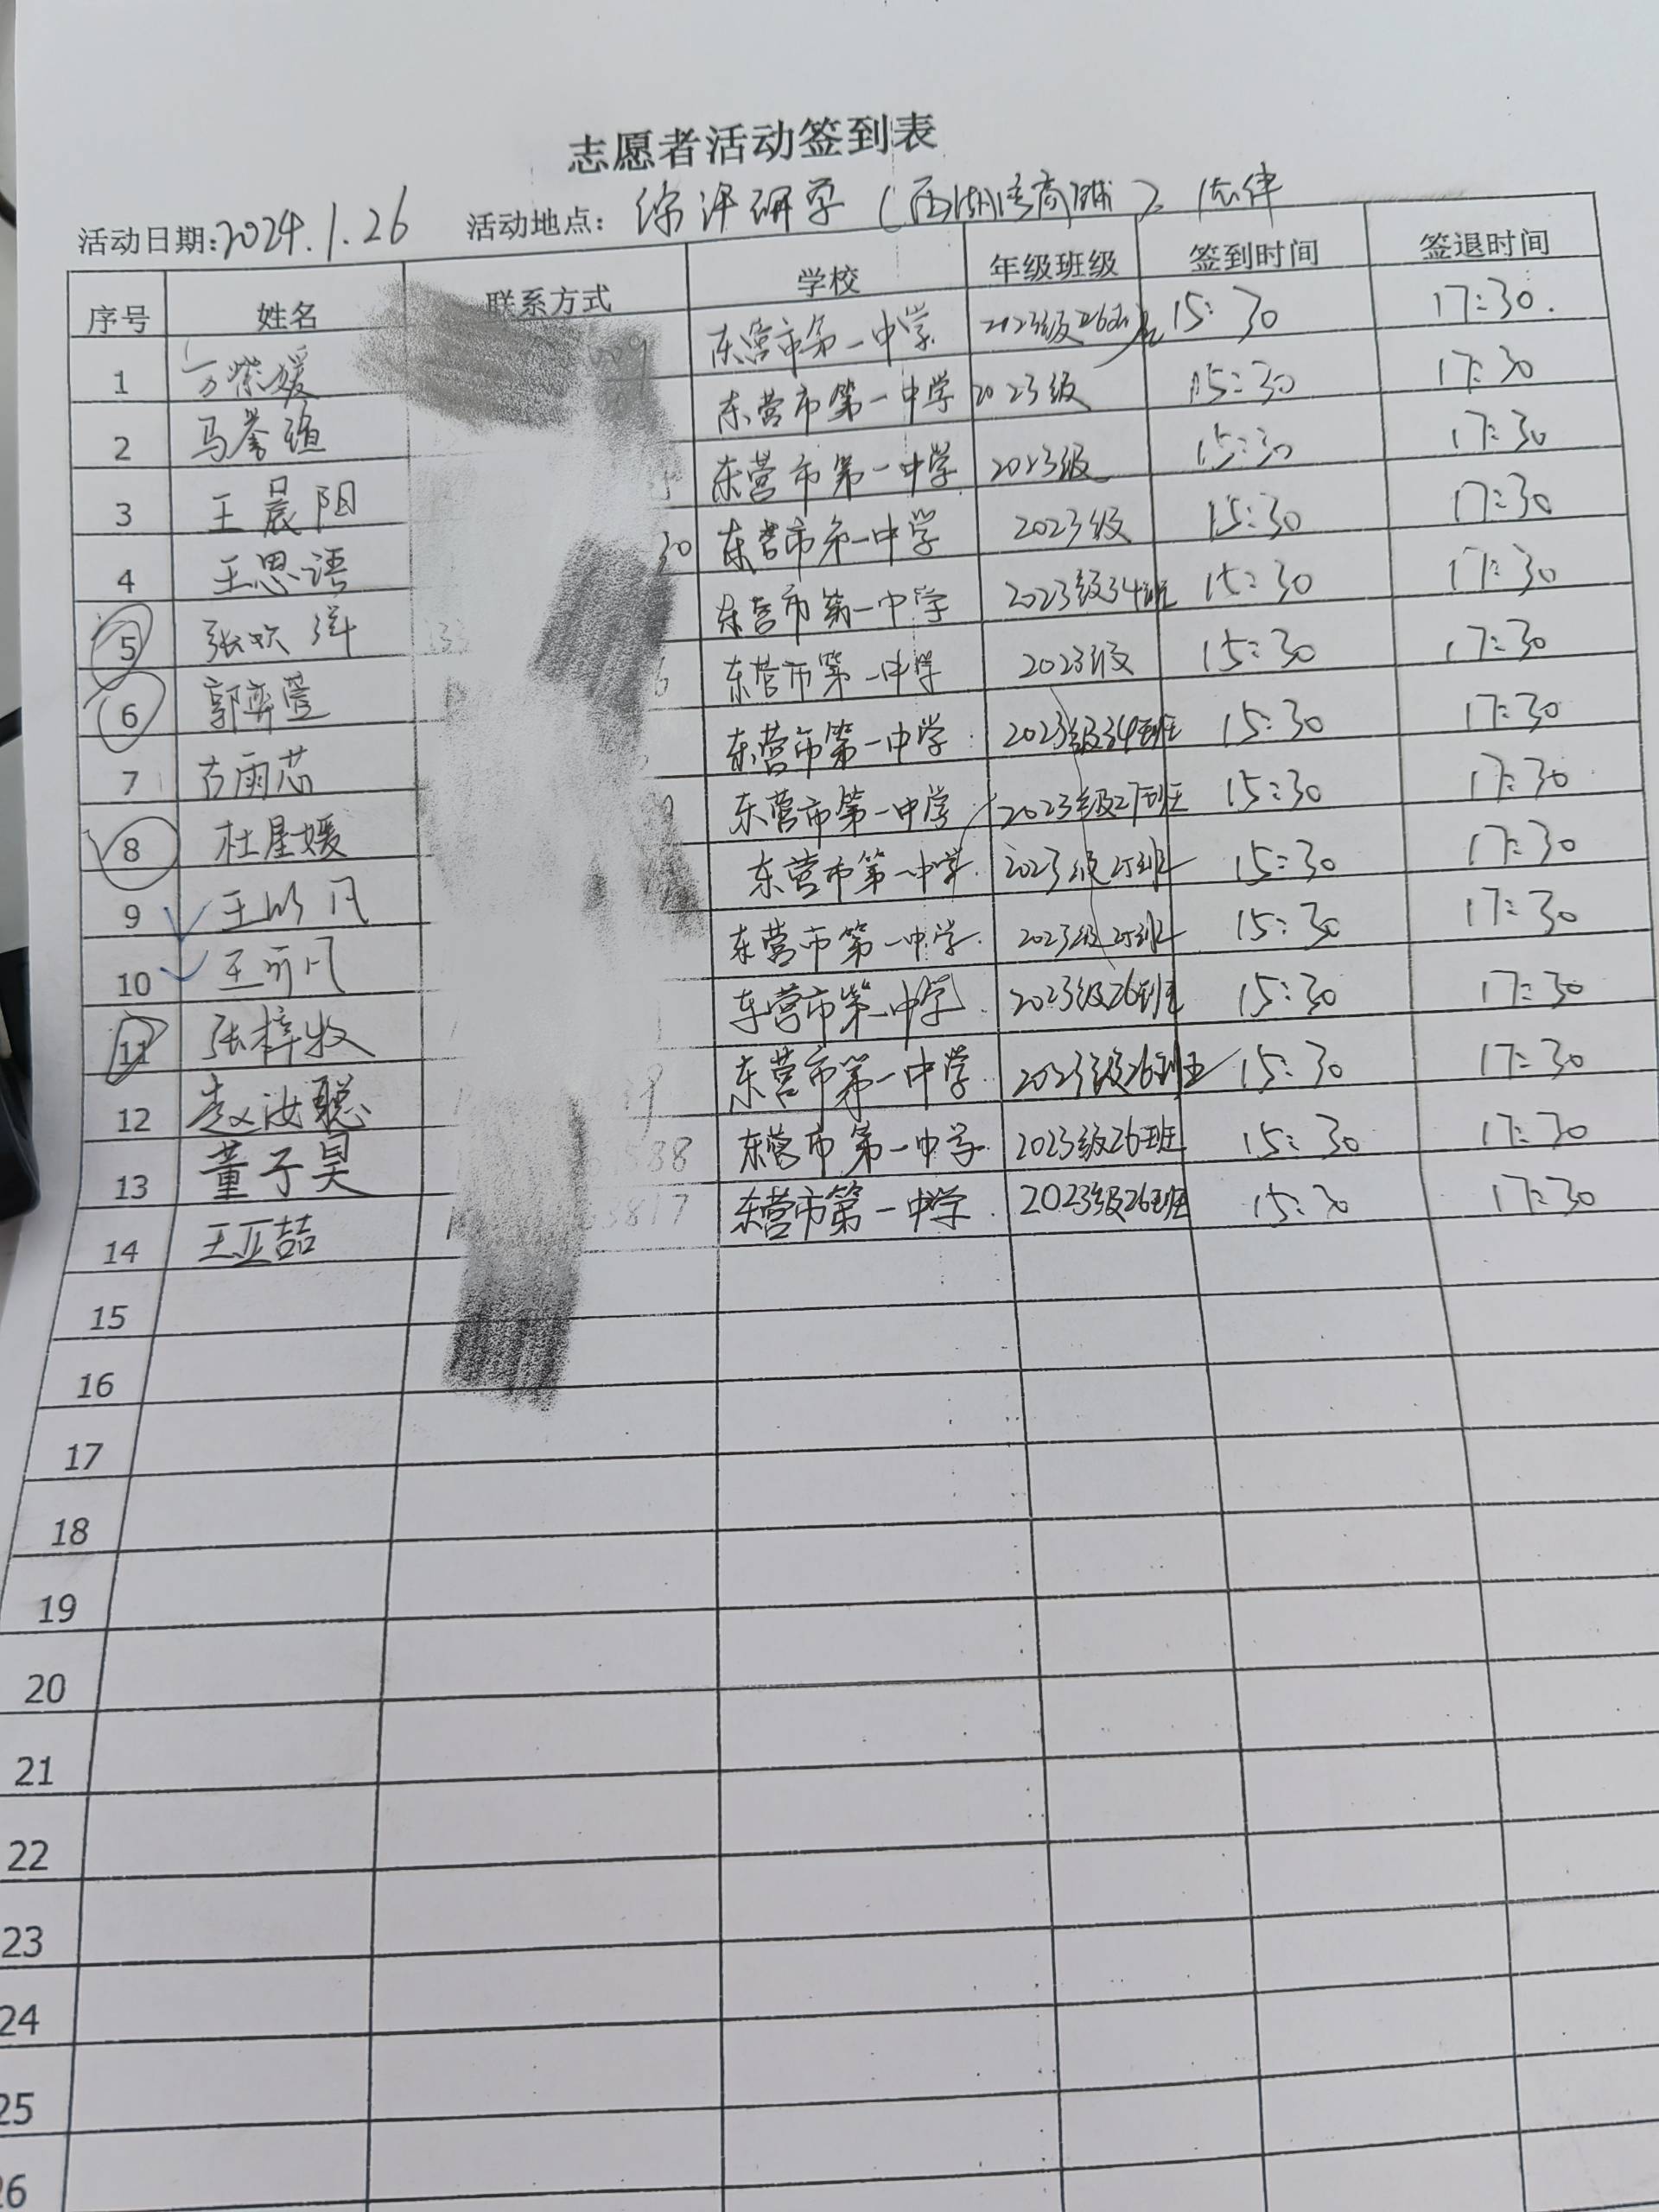 志愿者活动签到表
活动日期:2024.1.26 活动地点: 研学(西湖湾商铺) 法律
序号 姓名 联系方式 学校 年级班级 签到时间 签退时间
1 紫媛 009 东营市第一中学 2023级26班 15:30 17:30.
2 马誉 东营市第一中学 2023级 15:30 17:30
3 王晨阳 东营市第一中学 2023级 15:30 17:30
4 王思语 30 东营市第一中学 2023级 15:30 17:30
5 张欢洋 133 东营市第一中学 2023级34班 15:30 17:30
6 郭弈萱 6 东营市第一中学 2023级 15:30 17:30
7 古雨芯 东营市第一中学 2023级34班 15:30 17:30
8 杜星媛 东营市第一中学 2023级27班 15:30 17:30
9 王 凡 东营市第一中学 2023级25班 15:30 17:30
10 王 凡 东营市第一中学 2023级25班 15:30 17:30
11 张梓牧 东营市第一中学 2023级26班 15:30 17:30
12 赵汝聪 东营市第一中学 2023级26班 15:30 17:30
13 董子昊 538 东营市第一中学 2023级26班 15:30 17:30
14 王亚喆 3817 东营市第一中学 2023级26班 15:30 17:30
15
16
17
18
19
20
21
22
23
24
25
26